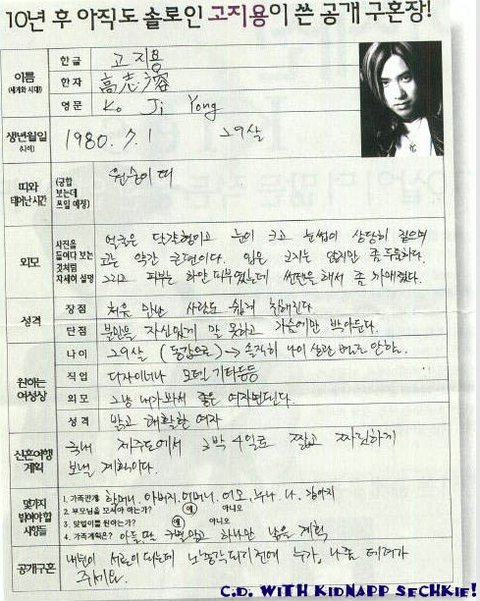 10년 후 아직도 솔로인 고지용이 쓴 공개 구혼장!
이름
(세계화 시대)
한글 고지용
한자 高志溶
영문 Ko Ji Yong
생년월일
(나이)
1980. 7. 1 29살
띠와
태어난 시간
(궁합
보는데
쓰일 예정)
원숭이 띠
외모
사진을
들여다 보는
것처럼
자세히 설명
얼굴은 달걀형이고 눈이 크고 눈썹이 상당히 짙으며
코는 약간 큰편이다. 입은 크지는 않지만 좀 두툼하다.
그리고 피부는 하얀 피부였는데 썬탠을 해서 좀 까매졌다.
성격
장점 처음 만난 사람도 쉽게 친해진다
단점 분만을 자신있게 말 못하고 가슴에만 박아둔다.
원하는
여성상
나이 29살 (동갑으로) → 솔직히 나이 상관 별로 안함.
직업 디자이너나 모델 기타등등
외모 그냥 내가봐서 좋은 여자면된다.
성격 밝고 쾌활한 여자
신혼여행
계획
국내 제주도에서 3박 4일로 짧고 짜릿하게
보낼 계획이다.
몇가지
밝혀야 할
사항들
1. 가족관계 할머니, 아버지, 어머니, 이모, 누나, 나, 강아지
2. 부모님을 모셔야 하는가? 예 아니오
3. 맞벌이를 원하는가? 예 아니오
4. 가족계획은? 아들 딸 구별 말고 하나만 낳을 계획
공개구혼
내년이 서른이 되는데 노총각되기 전에 누가 나좀 데려가
주세요.
C.D. WITH KIDNAPP SECHKIE!